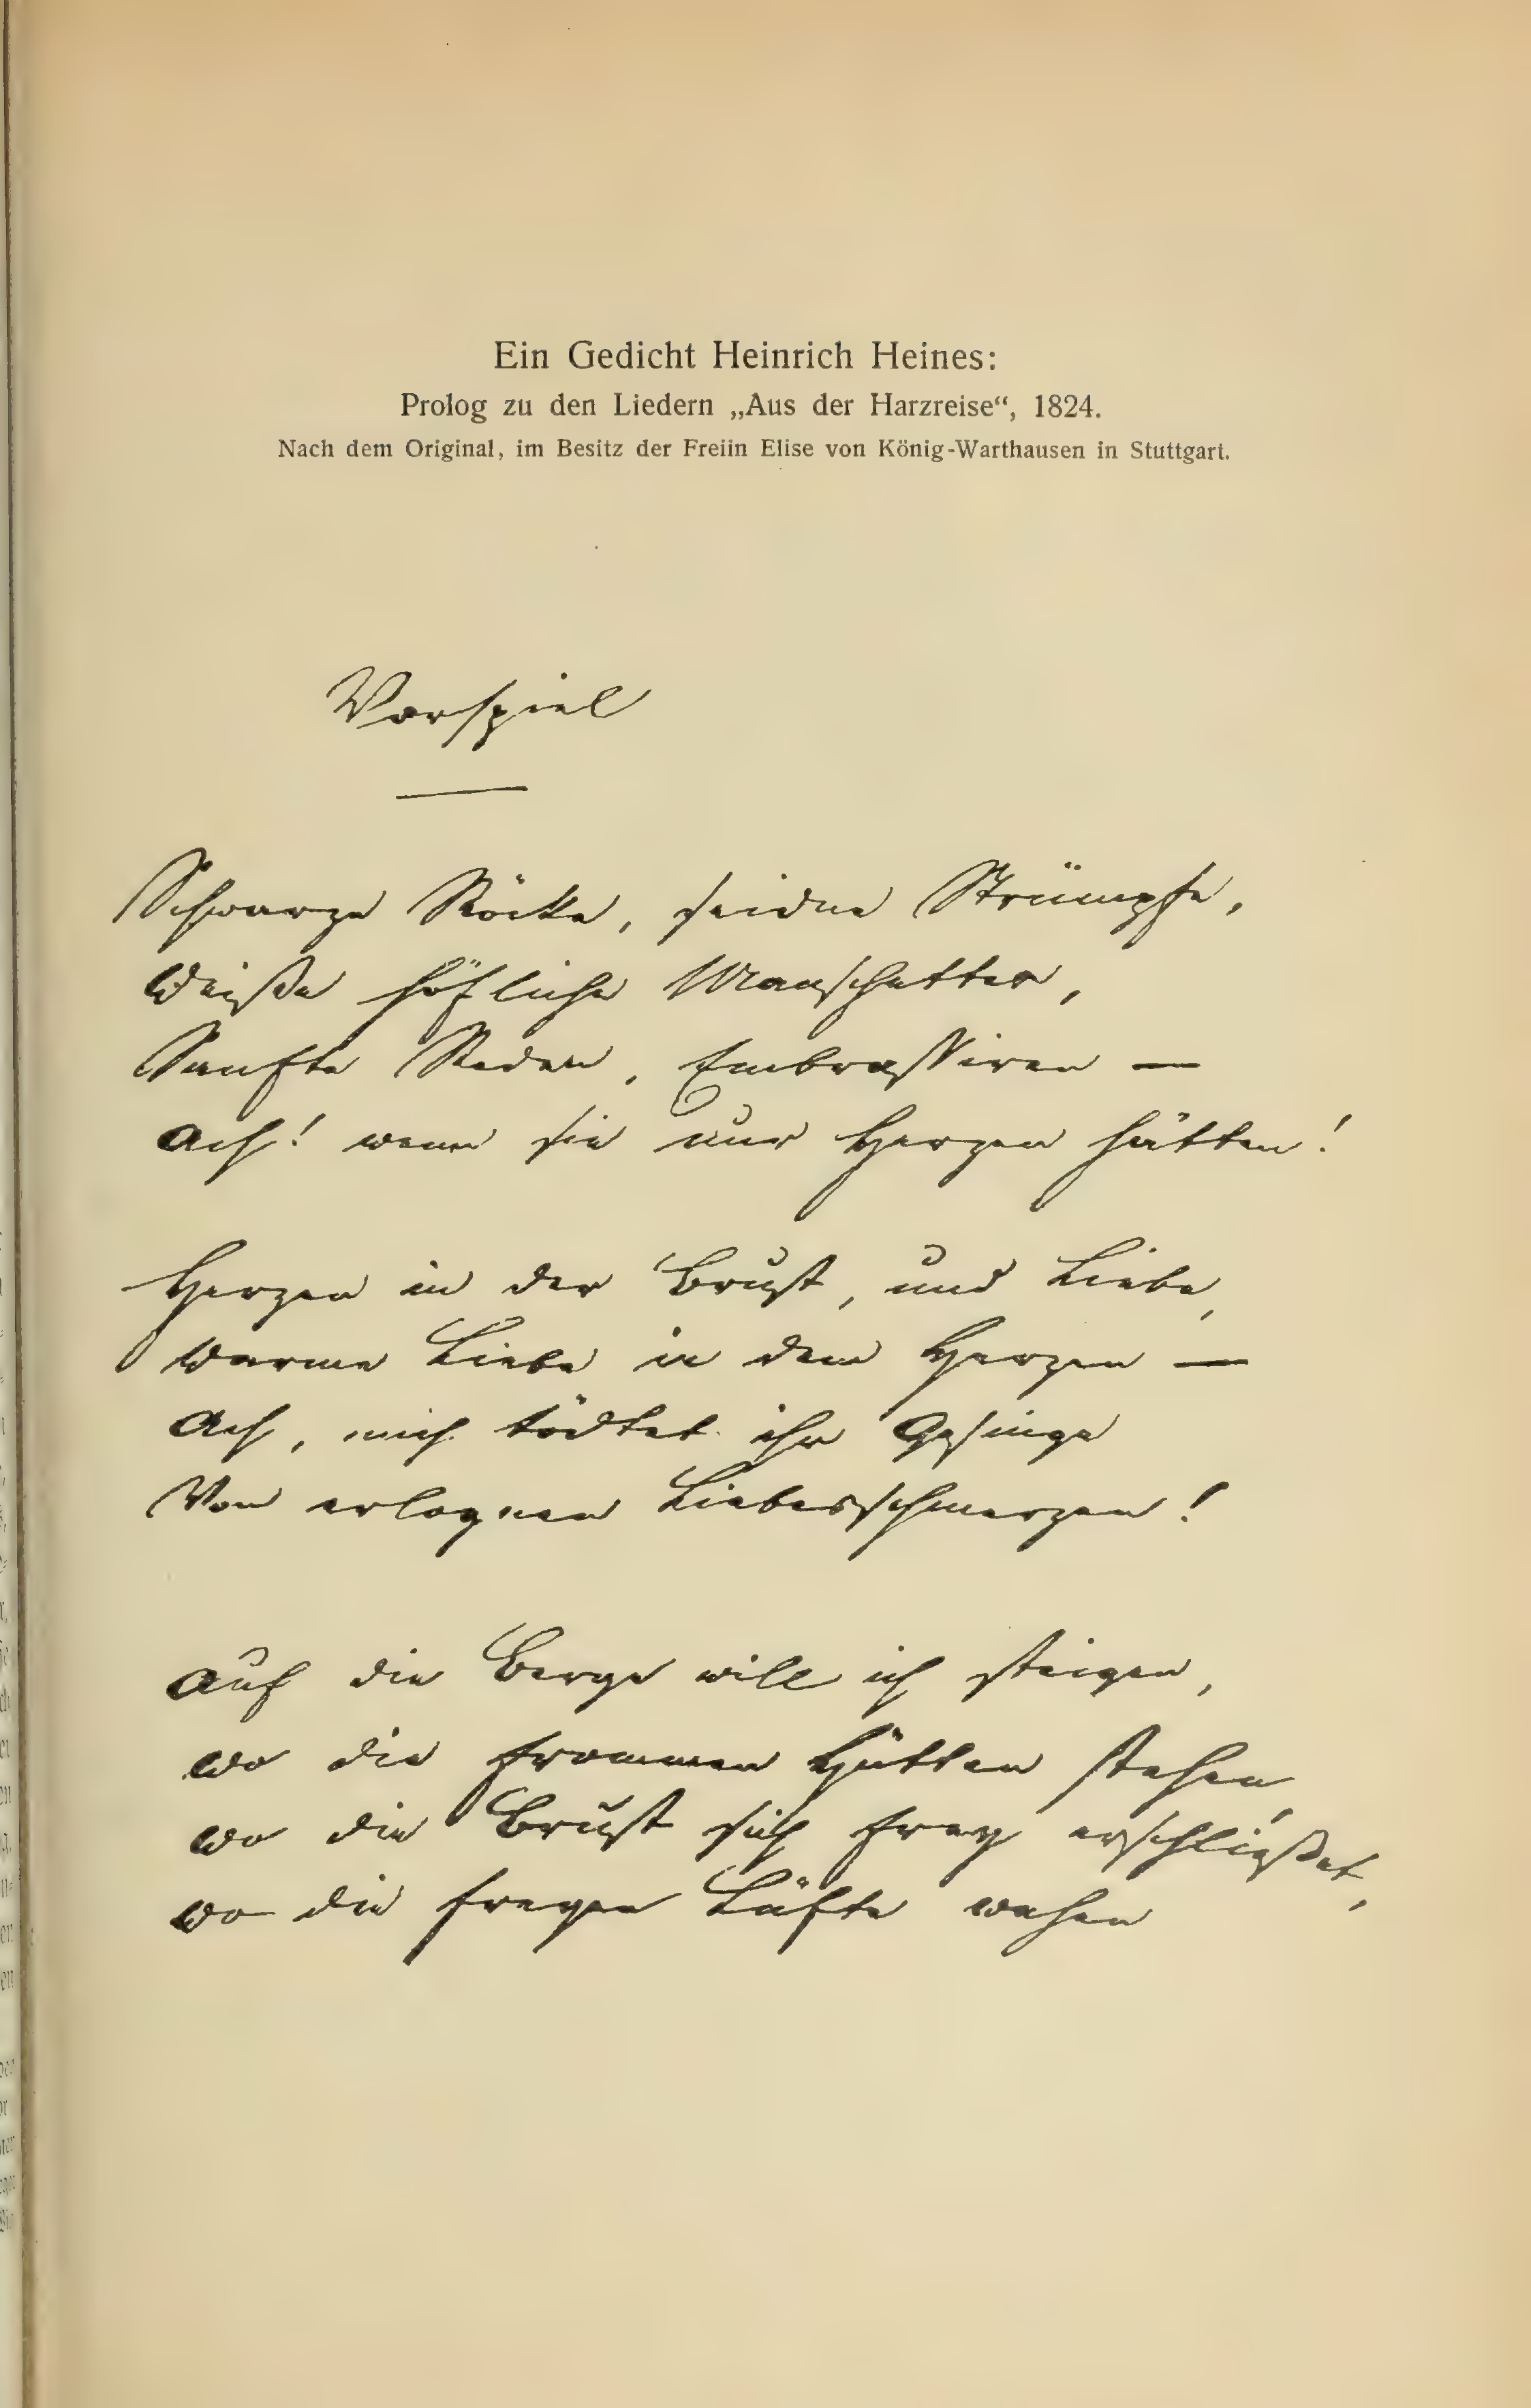 Ein Gedicht Heinrich Heines:
Prolog zu den Liedern „Aus der Harzreise“, 1824.
Nach dem Original, im Besitz der Freiin Elise von König-Warthausen in Stuttgart.
Vorspiel
Schwarze Röcke, seidne Strümpfe,
Weiße höfliche Manschetten,
Sanfte Reden, Embrassiren —
Ach! wenn sie nur Herzen hätten!
Herzen in der Brust, und Liebe,
Warme Liebe in dem Herzen —
Ach, mich tödtet ihr Gesinge
Von erlognen Liebesschmerzen!
Auf die Berge will ich steigen,
Wo die frommen Hütten stehen,
Wo die Brust sich frey erschließet,
Wo die freyen Lüfte wehen